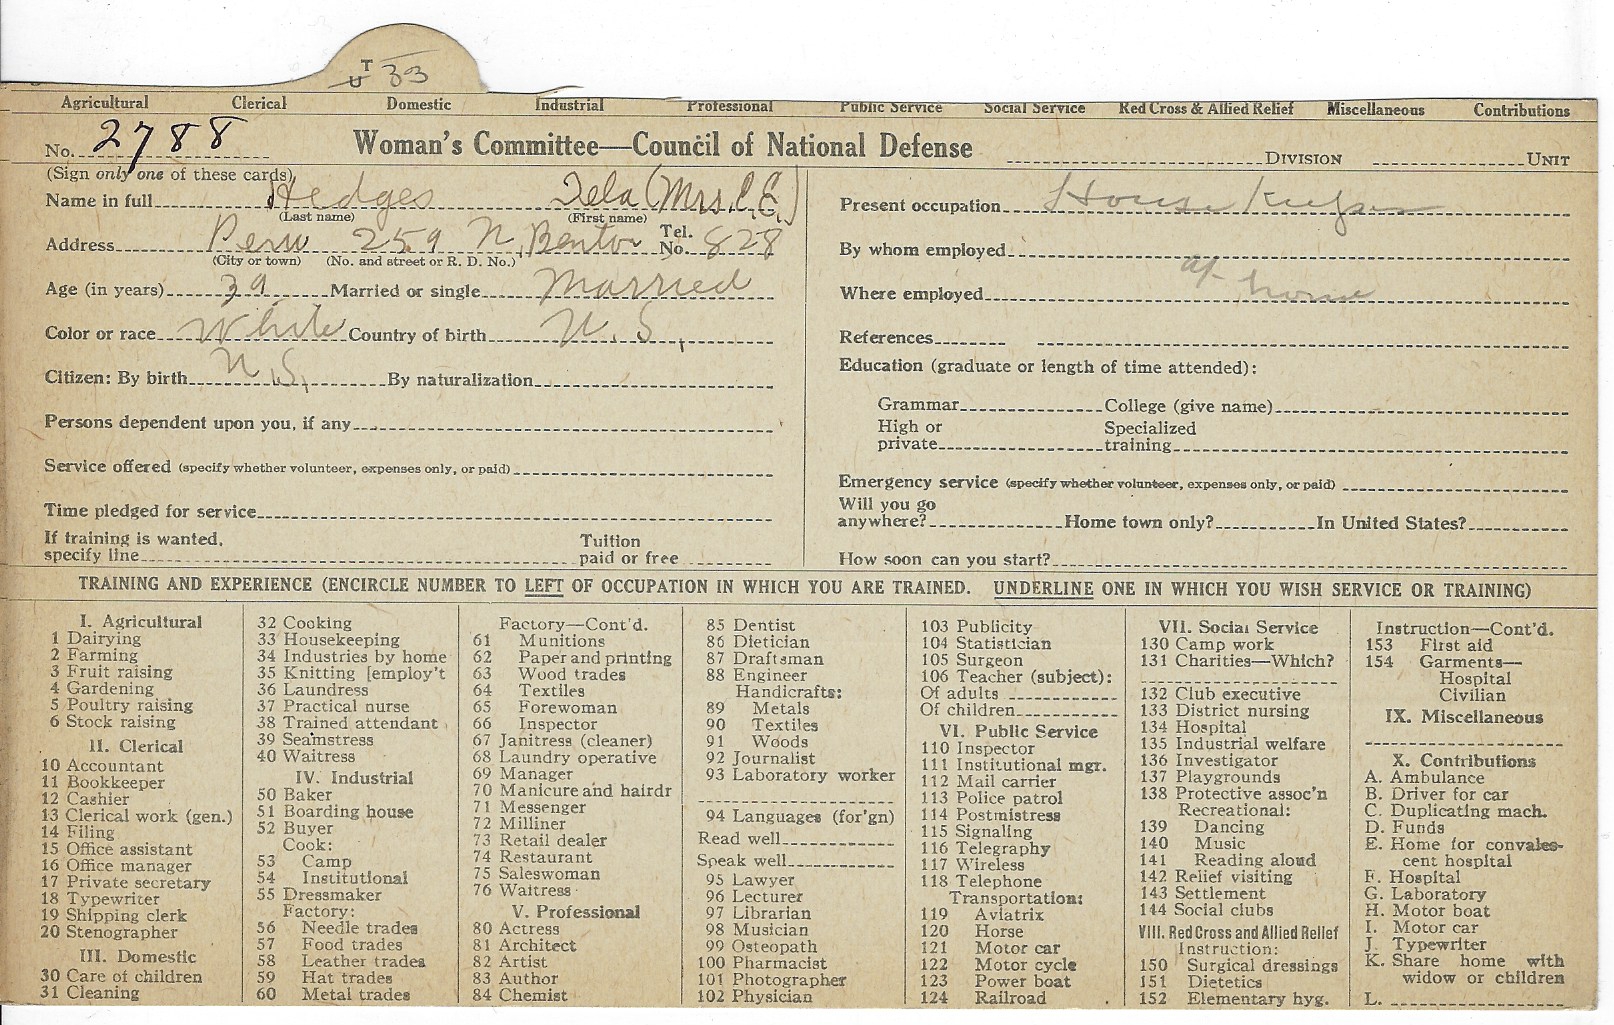 T
U 33
Agricultural Clerical Domestic Industrial Professional Public Service Social Service Red Cross & Allied Relief Miscellaneous Contributions
No. 2788 Woman's Committee—Council of National Defense DIVISION UNIT
(Sign only one of these cards)
Name in full Hedges (Mrs. C. E.)
(Last name) (First name)
Address Peru 259 N. Benton Tel. No. 828
(City or town) (No. and street or R. D. No.)
Age (in years) 39 Married or single Married
Color or race White Country of birth U. S.
Citizen: By birth U. S. By naturalization
Persons dependent upon you, if any
Service offered (specify whether volunteer, expenses only, or paid)
Time pledged for service
If training is wanted, specify line Tuition paid or free
Present occupation House Keeper
By whom employed
Where employed at home
References
Education (graduate or length of time attended):
Grammar College (give name)
High or private Specialized training
Emergency service (specify whether volunteer, expenses only, or paid)
Will you go anywhere? Home town only? In United States?
How soon can you start?
TRAINING AND EXPERIENCE (ENCIRCLE NUMBER TO LEFT OF OCCUPATION IN WHICH YOU ARE TRAINED. UNDERLINE ONE IN WHICH YOU WISH SERVICE OR TRAINING)
I. Agricultural
1 Dairying
2 Farming
3 Fruit raising
4 Gardening
5 Poultry raising
6 Stock raising
II. Clerical
10 Accountant
11 Bookkeeper
12 Cashier
13 Clerical work (gen.)
14 Filing
15 Office assistant
16 Office manager
17 Private secretary
18 Typewriter
19 Shipping clerk
20 Stenographer
III. Domestic
30 Care of children
31 Cleaning
32 Cooking
33 Housekeeping
34 Industries by home
35 Knitting [employ't
36 Laundress
37 Practical nurse
38 Trained attendant
39 Seamstress
40 Waitress
IV. Industrial
50 Baker
51 Boarding house
52 Buyer
Cook:
53 Camp
54 Institutional
55 Dressmaker
Factory:
56 Needle trades
57 Food trades
58 Leather trades
59 Hat trades
60 Metal trades
Factory—Cont'd.
61 Munitions
62 Paper and printing
63 Wood trades
64 Textiles
65 Forewoman
66 Inspector
67 Janitress (cleaner)
68 Laundry operative
69 Manager
70 Manicure and hairdr
71 Messenger
72 Milliner
73 Retail dealer
74 Restaurant
75 Saleswoman
76 Waitress
V. Professional
80 Actress
81 Architect
82 Artist
83 Author
84 Chemist
85 Dentist
86 Dietician
87 Draftsman
88 Engineer
Handicrafts:
89 Metals
90 Textiles
91 Woods
92 Journalist
93 Laboratory worker
94 Languages (for'gn)
Read well
Speak well
95 Lawyer
96 Lecturer
97 Librarian
98 Musician
99 Osteopath
100 Pharmacist
101 Photographer
102 Physician
103 Publicity
104 Statistician
105 Surgeon
106 Teacher (subject):
Of adults
Of children
VI. Public Service
110 Inspector
111 Institutional mgr.
112 Mail carrier
113 Police patrol
114 Postmistress
115 Signaling
116 Telegraphy
117 Wireless
118 Telephone
Transportation:
119 Aviatrix
120 Horse
121 Motor car
122 Motor cycle
123 Power boat
124 Railroad
VII. Social Service
130 Camp work
131 Charities—Which?
132 Club executive
133 District nursing
134 Hospital
135 Industrial welfare
136 Investigator
137 Playgrounds
138 Protective assoc'n
Recreational:
139 Dancing
140 Music
141 Reading aloud
142 Relief visiting
143 Settlement
144 Social clubs
VIII. Red Cross and Allied Relief
Instruction:
150 Surgical dressings
151 Dietetics
152 Elementary hyg.
Instruction—Cont'd.
153 First aid
154 Garments—
Hospital
Civilian
IX. Miscellaneous
X. Contributions
A. Ambulance
B. Driver for car
C. Duplicating mach.
D. Funds
E. Home for convales-
cent hospital
F. Hospital
G. Laboratory
H. Motor boat
I. Motor car
J. Typewriter
K. Share home with
widow or children
L.